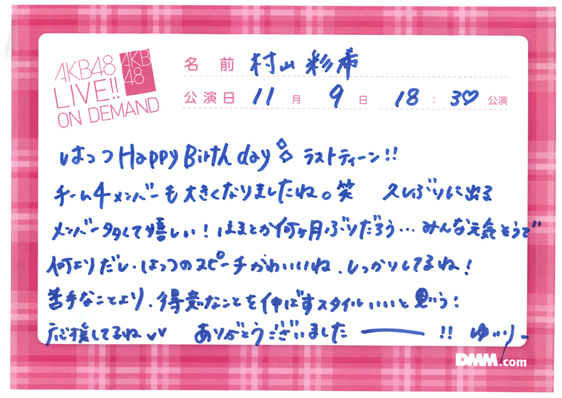 AKB48
LIVE!!
ON DEMAND
AKB
48
名前 村山彩希
公演日 11月 9日 18:30公演
はっつ Happy Birthday ラストティーン!!
チーム4メンバーも大きくなりましたね。笑 久しぶりに出る
メンバー多くて嬉しい!はまとか何ヶ月ぶりだろう…みんな元気そうで
何よりだし、はっつのスピーチかわいいね、しっかりしてるね!
苦手なことより、得意なことを伸ばすスタイルいいと思う!
応援してるね♡♡ ありがとうございました ー !! ゆいりー
DMM.com